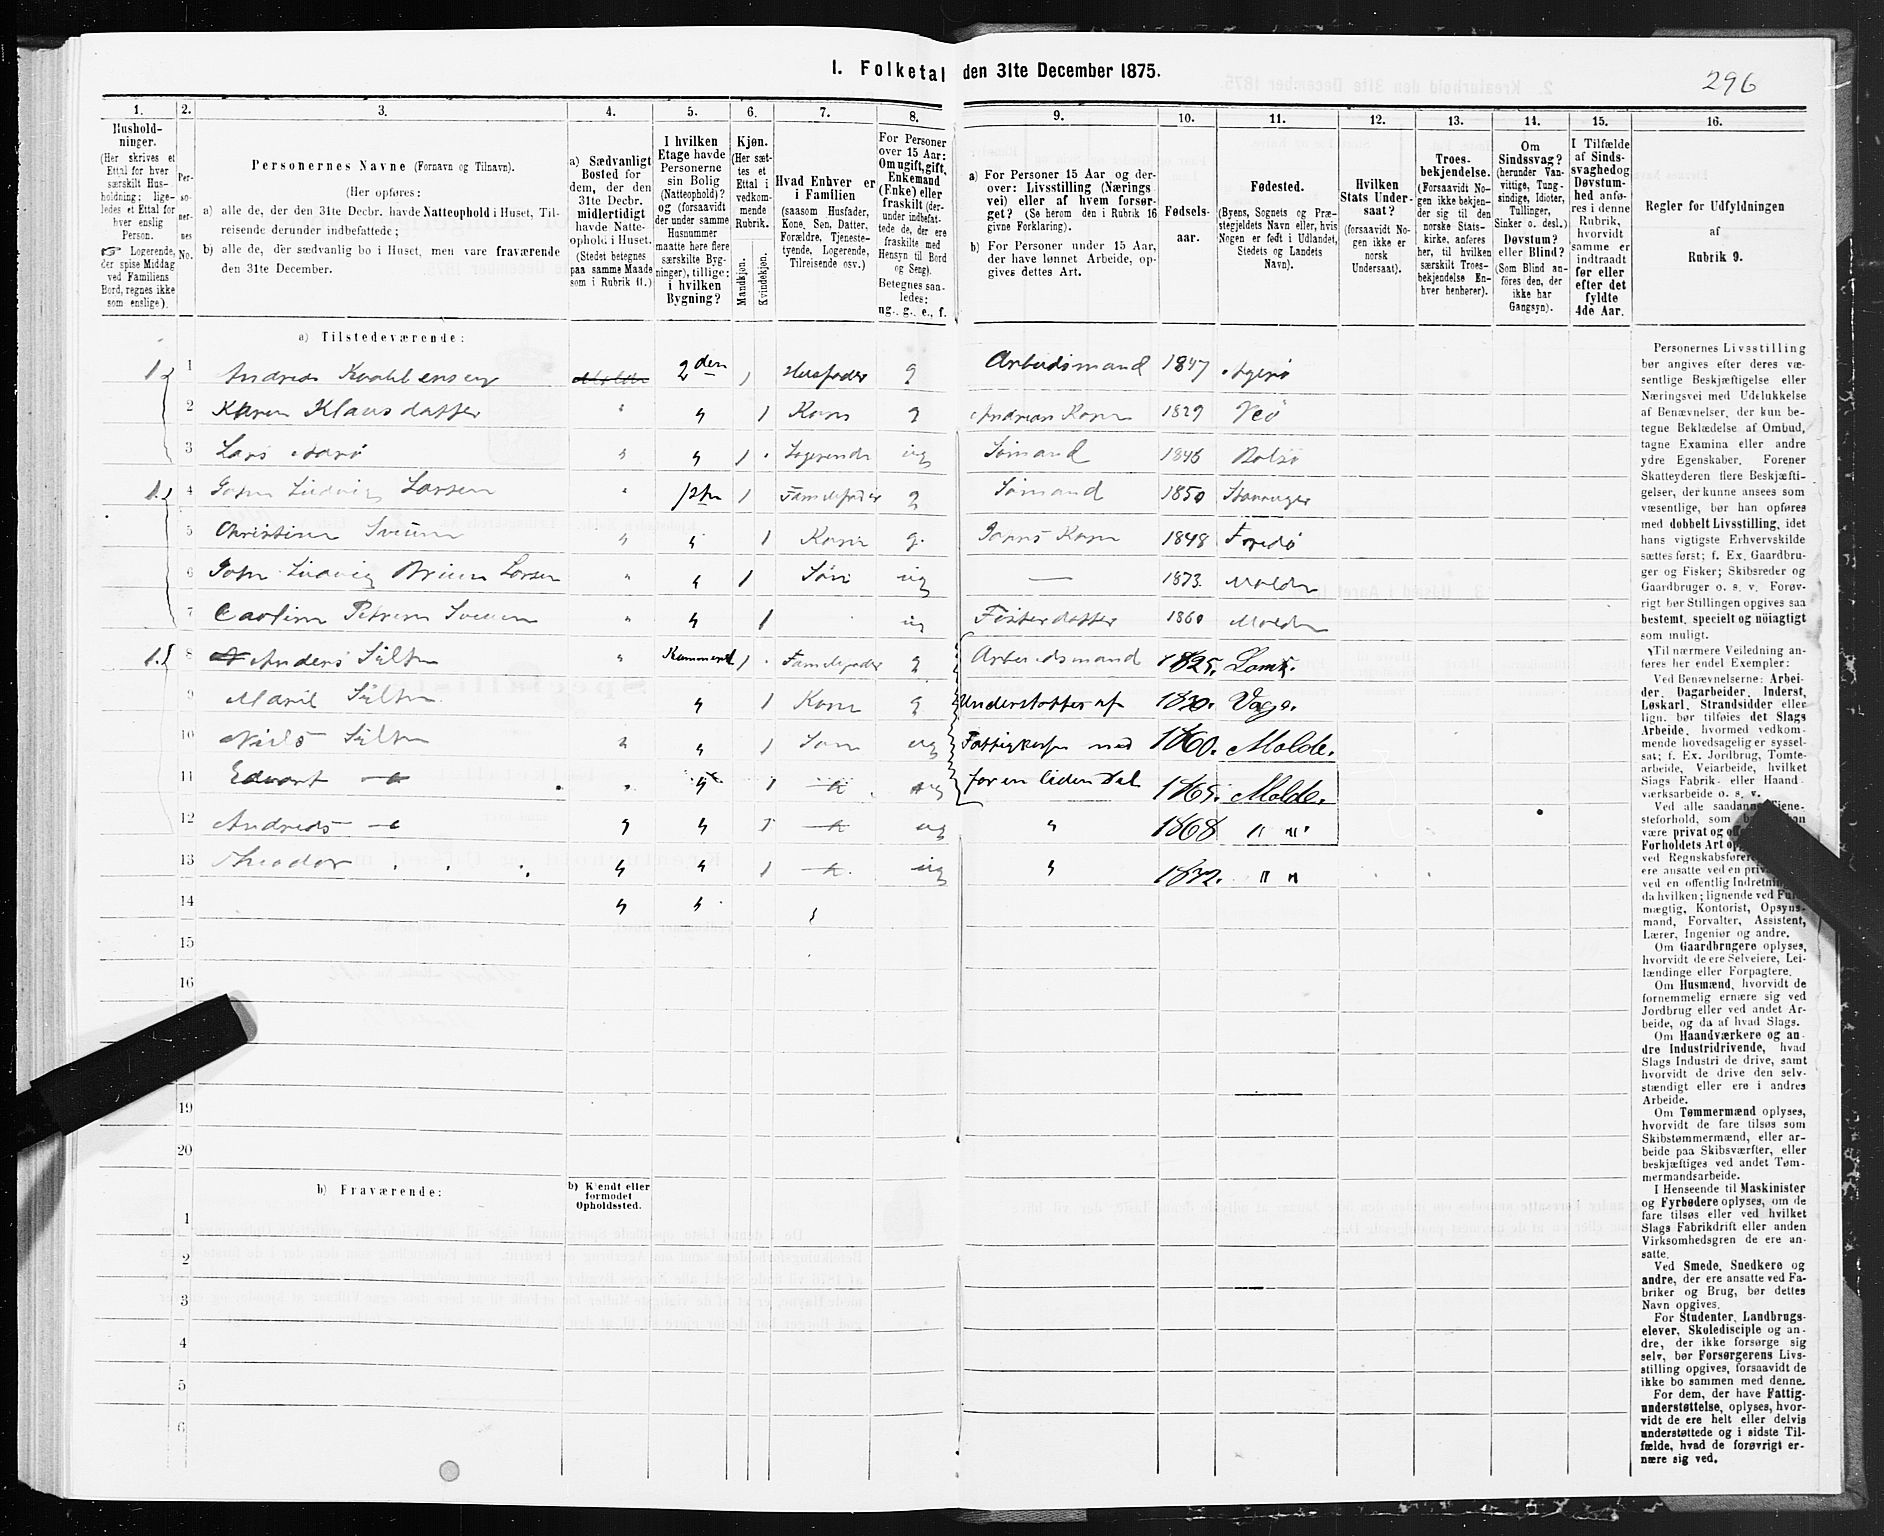 I. Folketal den 31te December 1875.
296
1.
2.
3.
4.
5.
6.
7.
8.
9.
10.
11.
12.
13.
14.
15.
16.
Husholdninger.
(Her skrives et
Ettal for hver
særskilt Husholdning; ligeledes et Ettal for
hver enslig
Person.
☞ Logerende,
der spise Middag
ved Familiens
Bord, regnes ikke
som enslige).
Personernes
No.
Personernes Navne (Fornavn og Tilnavn).
(Her opføres:
a) alle de, der den 31te Decbr. havde Natteophold i Huset, Tilreisende derunder indbefattede;
b) alle de, der sædvanlig bo i Huset, men vare fraværende
den 31te December.
a) Sædvanligt
Bosted for
dem, der den
31te Decbr.
midlertidigt
havde Natteophold i Huset.
(Stedet betegnes
paa samme Maade
som i Rubrik 11.)
I hvilken
Etage havde
Personerne
sin Bolig
(Natteophold)?
og (forsaavidt
der under samme
Husnummer
maatte høre flere
særskilte Bygninger), tillige:
i hvilken
Bygning?
Kjøn.
(Her sættes et
Ettal i
vedkommende
Rubrik.
Mandkjøn.
Kvindekjøn.
Hvad Enhver er
i Familien
(saasom Husfader,
Kone, Søn, Datter,
Forældre, Tjenestetyende, Logerende,
Tilreisende osv.)
For Personer
over 15 Aar:
Om ugift, gift,
Enkemand
(Enke) eller
fraskilt (derunder indbefattede de, der ere
fraskilte med
Hensyn til Bord
og Seng).
Betegnes saaledes:
ug., g., e., f.
a) For Personer 15 Aar og derover: Livsstilling (Næringsvei) eller af hvem forsørget? (Se herom den i Rubrik 16
givne Forklaring).
b) For Personer under 15 Aar,
der have lønnet Arbeide, opgives dettes Art.
Fødselsaar.
Fødested.
(Byens, Sognets og Præstegjeldets Navn eller, hvis
Nogen er født i Udlandet,
Stedets og Landets
Navn).
Hvilken
Stats Undersaat?
(forsaavidt Nogen ikke er
norsk
Undersaat).
Troesbekjendelse.
(Forsaavidt Nogen ikke bekjender sig til den
norske Statskirke, anføres
her, til hvilken
særskilt Troesbekjendelse Enhver henhører).
Om
Sindssvag?
(herunder Vanvittige, Tungsindige, Idioter,
Tullinger,
Sinker o. desl.)
Døvstum?
eller Blind?
(Som Blind anføres den, der
ikke har
Gangsyn).
I Tilfælde
af Sindssvaghed og
Døvstumhed anføres i denne
Rubrik,
hvorvidt
samme er
indtraadt
før eller
efter det
fyldte
4de Aar.
Regler for Udfyldningen
af
Rubrik 9.
a) Tilstedeværende:
1 1 2den 1 Husfader g Arbeidsmand 1847
2 Karen Klausdatter " " 1 Kone g Andreas Kone 1829 Veö
3 Lars " " 1 Logerende ug Sømand 1846 Bolsö
1 4 John Ludvig Larsen " 1ste 1 Familiefader g Sømand 1850 Stavanger
5 Christine " " 1 Kone g. Kone 1848
6 John Ludvig Larsen " " 1 Søn ug 1873 Molde
7 " " 1 ug Fosterdatter 1860 Molde
1 8 Anders " 1 Familiefader g Arbeidsmand 1825. Lom.
9 Marit " 1 Kone g Understøttes af 1830. Vage.
10 Niels " " 1 Søn ug Fattigkassen med 1860. Molde.
11 Edvart " " 1 " ug for en liden Del 1865. Molde.
12 Andreas " " 1 " ug " 1868 " "
13 Theodor " " 1 " ug " 1872. " "
14 " " "
15
16
19
20
b) Fraværende:
b) Kjendt eller
formodet
Opholdssted.
1
2
3
4
5
6
Personernes Livsstilling
bør angives efter deres væsentlige Beskjæftigelse eller
Næringsvei med Udelukkelse
af Benævnelser, der kun betegne Beklædelse af Ombud,
tagne Examina eller andre
ydre Egenskaber. Forener
Skatteyderen flere Beskjæftigelser, der kunne ansees som
væsentlige, bør han opføres
med dobbelt Livsstilling, idet
hans vigtigste Erhvervskilde
sættes først; f. Ex. Gaardbruger og Fisker; Skibsreder og
Gaardbruger o. s. v. Forøvrigt bør Stillingen opgives saa
bestemt, specielt og nøiagtigt
som muligt.
Til nærmere Veiledning anføres her endel Exempler:
Ved Benævnelserne: Arbeider, Dagarbeider, Inderst,
Løskarl, Strandsidder eller
lign. bør tilføies det Slags
Arbeide, hvormed vedkommende hovedsagelig er sysselsat; f. Ex. Jordbrug, Tomtearbeide, Veiarbeide, hvilket
Slags Fabrik- eller Haandværksarbeide o. s. v.
Ved alle saadanne Tjenesteforhold, som
være privat og
Forholdets Art
ved Regnskabsførere
ere ansatte ved en
ved en offentlig Indretning,
da hvilken; lignende ved Fuldmægtig, Kontorist, Opsynsmand, Forvalter, Assistent,
Lærer, Ingeniør og andre.
Om Gaardbrugere oplyses,
hvorvidt de ere Selveiere, Leilændinge eller Forpagtere.
Om Husmænd, hvorvidt de
fornemmelig ernære sig ved
Jordbrug eller ved andet Arbeide, og da af hvad Slags.
Om Haandværkere og andre Industridrivende, hvad
Slags Industri de drive, samt
hvorvidt de drive den selvstændigt eller ere i andres
Arbeide.
Om Tømmermænd oplyses,
hvorvidt de fare tilsøs som
Skibstømmermænd, eller arbeide paa Skibsværfter, eller
beskjæftiges ved andet Tømmermandsarbeide.
I Henseende til Maskinister
og Fyrbødere oplyses, om de
fare tilsøs eller ved hvilket
Slags Fabrikdrift eller anden
Virksomhedsgren de ere ansatte.
Ved Smede, Snedkere og
andre, der ere ansatte ved Fabriker og Brug, bør dettes
Navn opgives.
For Studenter, Landbrugselever, Skoledisciple og andre, der ikke forsørge sig
selv, bør Forsørgerens Livsstilling opgives, forsaavidt de
ikke bo sammen med denne.
For dem, der have Fattigunderstøttelse, oplyses, hvorvidt de ere helt eller delvis
understøttede og i sidste Tilfælde, hvad de forøvrigt ernære sig ved.